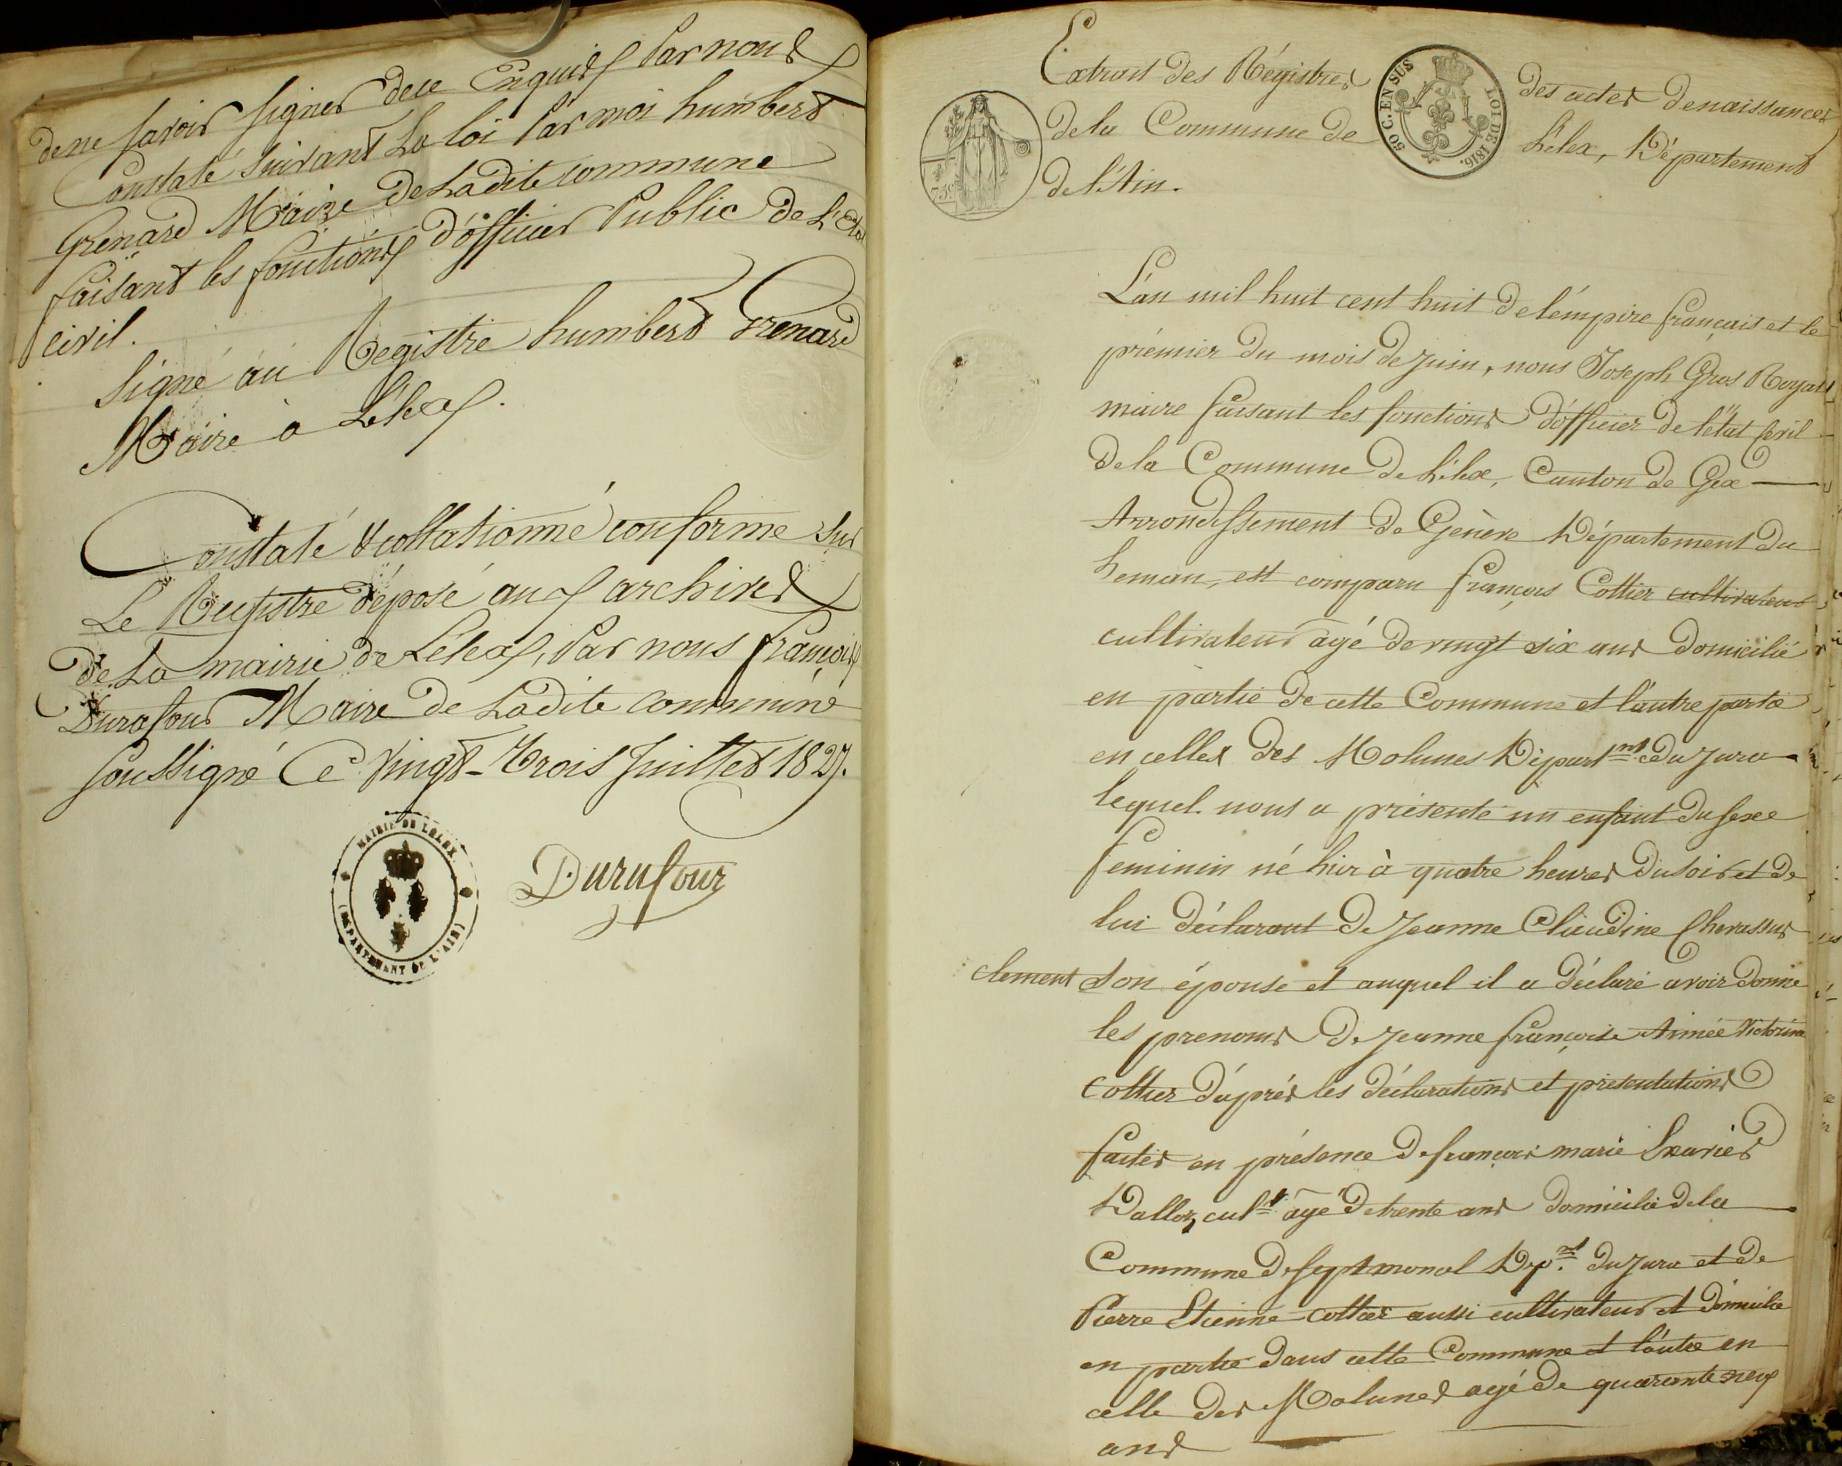 de ne savoir signer de ce Enquis Par nous
Constaté suivant La loi Par moi humbert
Grenard Maire De Ladite commune
faisant les fonctions d'officier Public De L'Etat
civil.
Signé au Registre humbert Grenard
Maire à Lélex.
Constaté & collationné conforme sur
Le Registre déposé aux archives
De La mairie de Lélex, Par nous françois
Durafour Maire de Ladite commune
soussigné Ce Vingt-Trois Juillet 1827.
MAIRIE DE LELEX
(DEPARTEMANT DE L'AIN)
Durafour
Extrait des Régistres des actes de naissances
de la Commune de Lélex, Département
de l'Ain.
50 C. EN SUS
LOI DE 1816.
L'an mil huit cent huit de l'émpire français et le
prémier du mois de juin, nous Joseph Gros Royat
maire faisant les fonctions d'officier de l'état Civil
de la Commune de Lélex, Canton de Gex
Arrondissement de Genève Département du
Leman, est comparu françois Cottier cultivateur
cultivateur agé de vingt six ans domicilié
en partie de cette Commune et l'autre partie
en celles des Molunes Départ.nt du Jura
lequel nous a présenté un enfant du sexe
feminin né hier à quatre heures du soir et de
lui déclarant de Jeanne Claudine Chevassus
clement son épouse et auquel il a déclaré avoir donné
les prenoms de Jeanne françoise Aimée Victorine
Cottier d'après les déclarations et présentations
faites en présence de françois marie Xavier
Dalloz, cult.r agé de trente ans domicilié de la
Commune de septmoncel Dep.nt du Jura et de
Pierre Etienne cottier aussi cultivateur et domicilié
en partie dans cette Commune et l'autre en
celle des Molunes agé de quarante neuf
ans